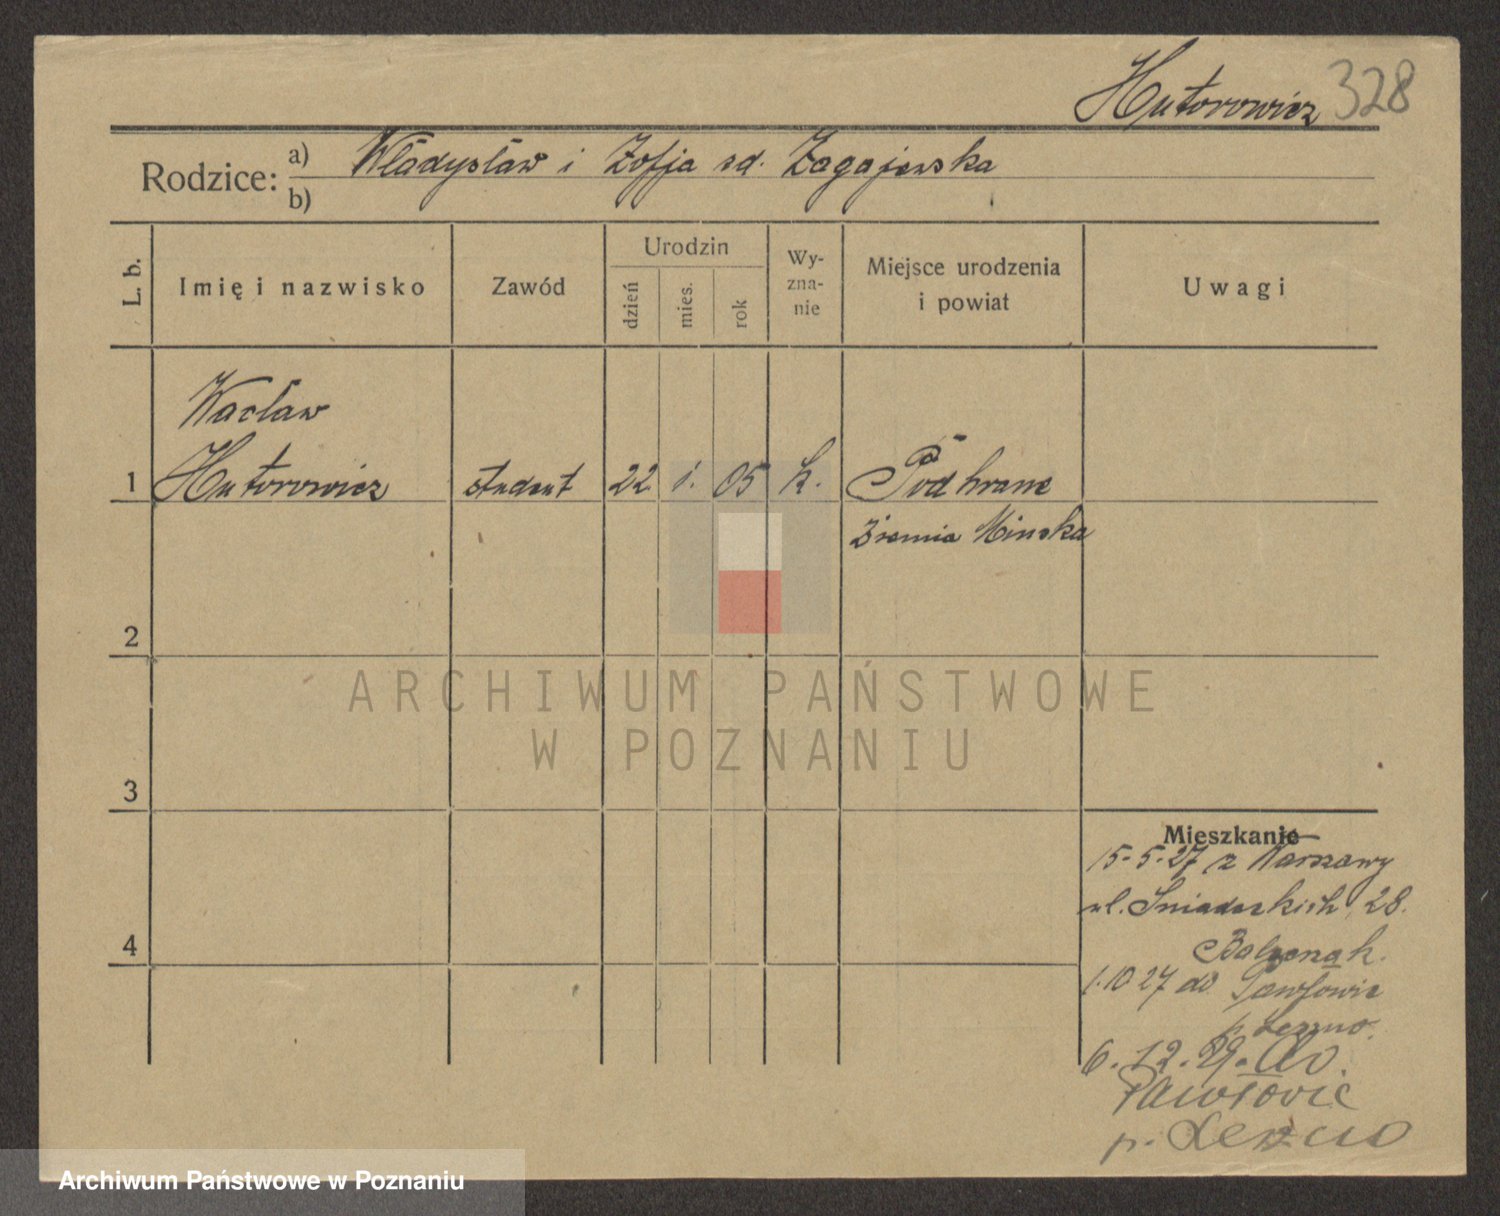 Hutorowicz 328
Rodzice: a) Władysław i Zofja zd. Zagajewska
b)
L. b. Imię i nazwisko Zawód Urodzin dzień mies. rok Wy-zna-nie Miejsce urodzenia i powiat Uwagi
Wacław
1 Hutorowicz student 22 1. 05 k. Podhrane
Ziemia Mińska
2
ARCHIWUM PAŃSTWOWE
W POZNANIU
3
Mieszkanie
15-5-27 z Warszawy
ul. Śniadeckich 28.
4
1.10 27 do Pawłowic
p. Leszno.
6.12.29. do
Pawłowic
p. Leszno
Archiwum Państwowe w Poznaniu